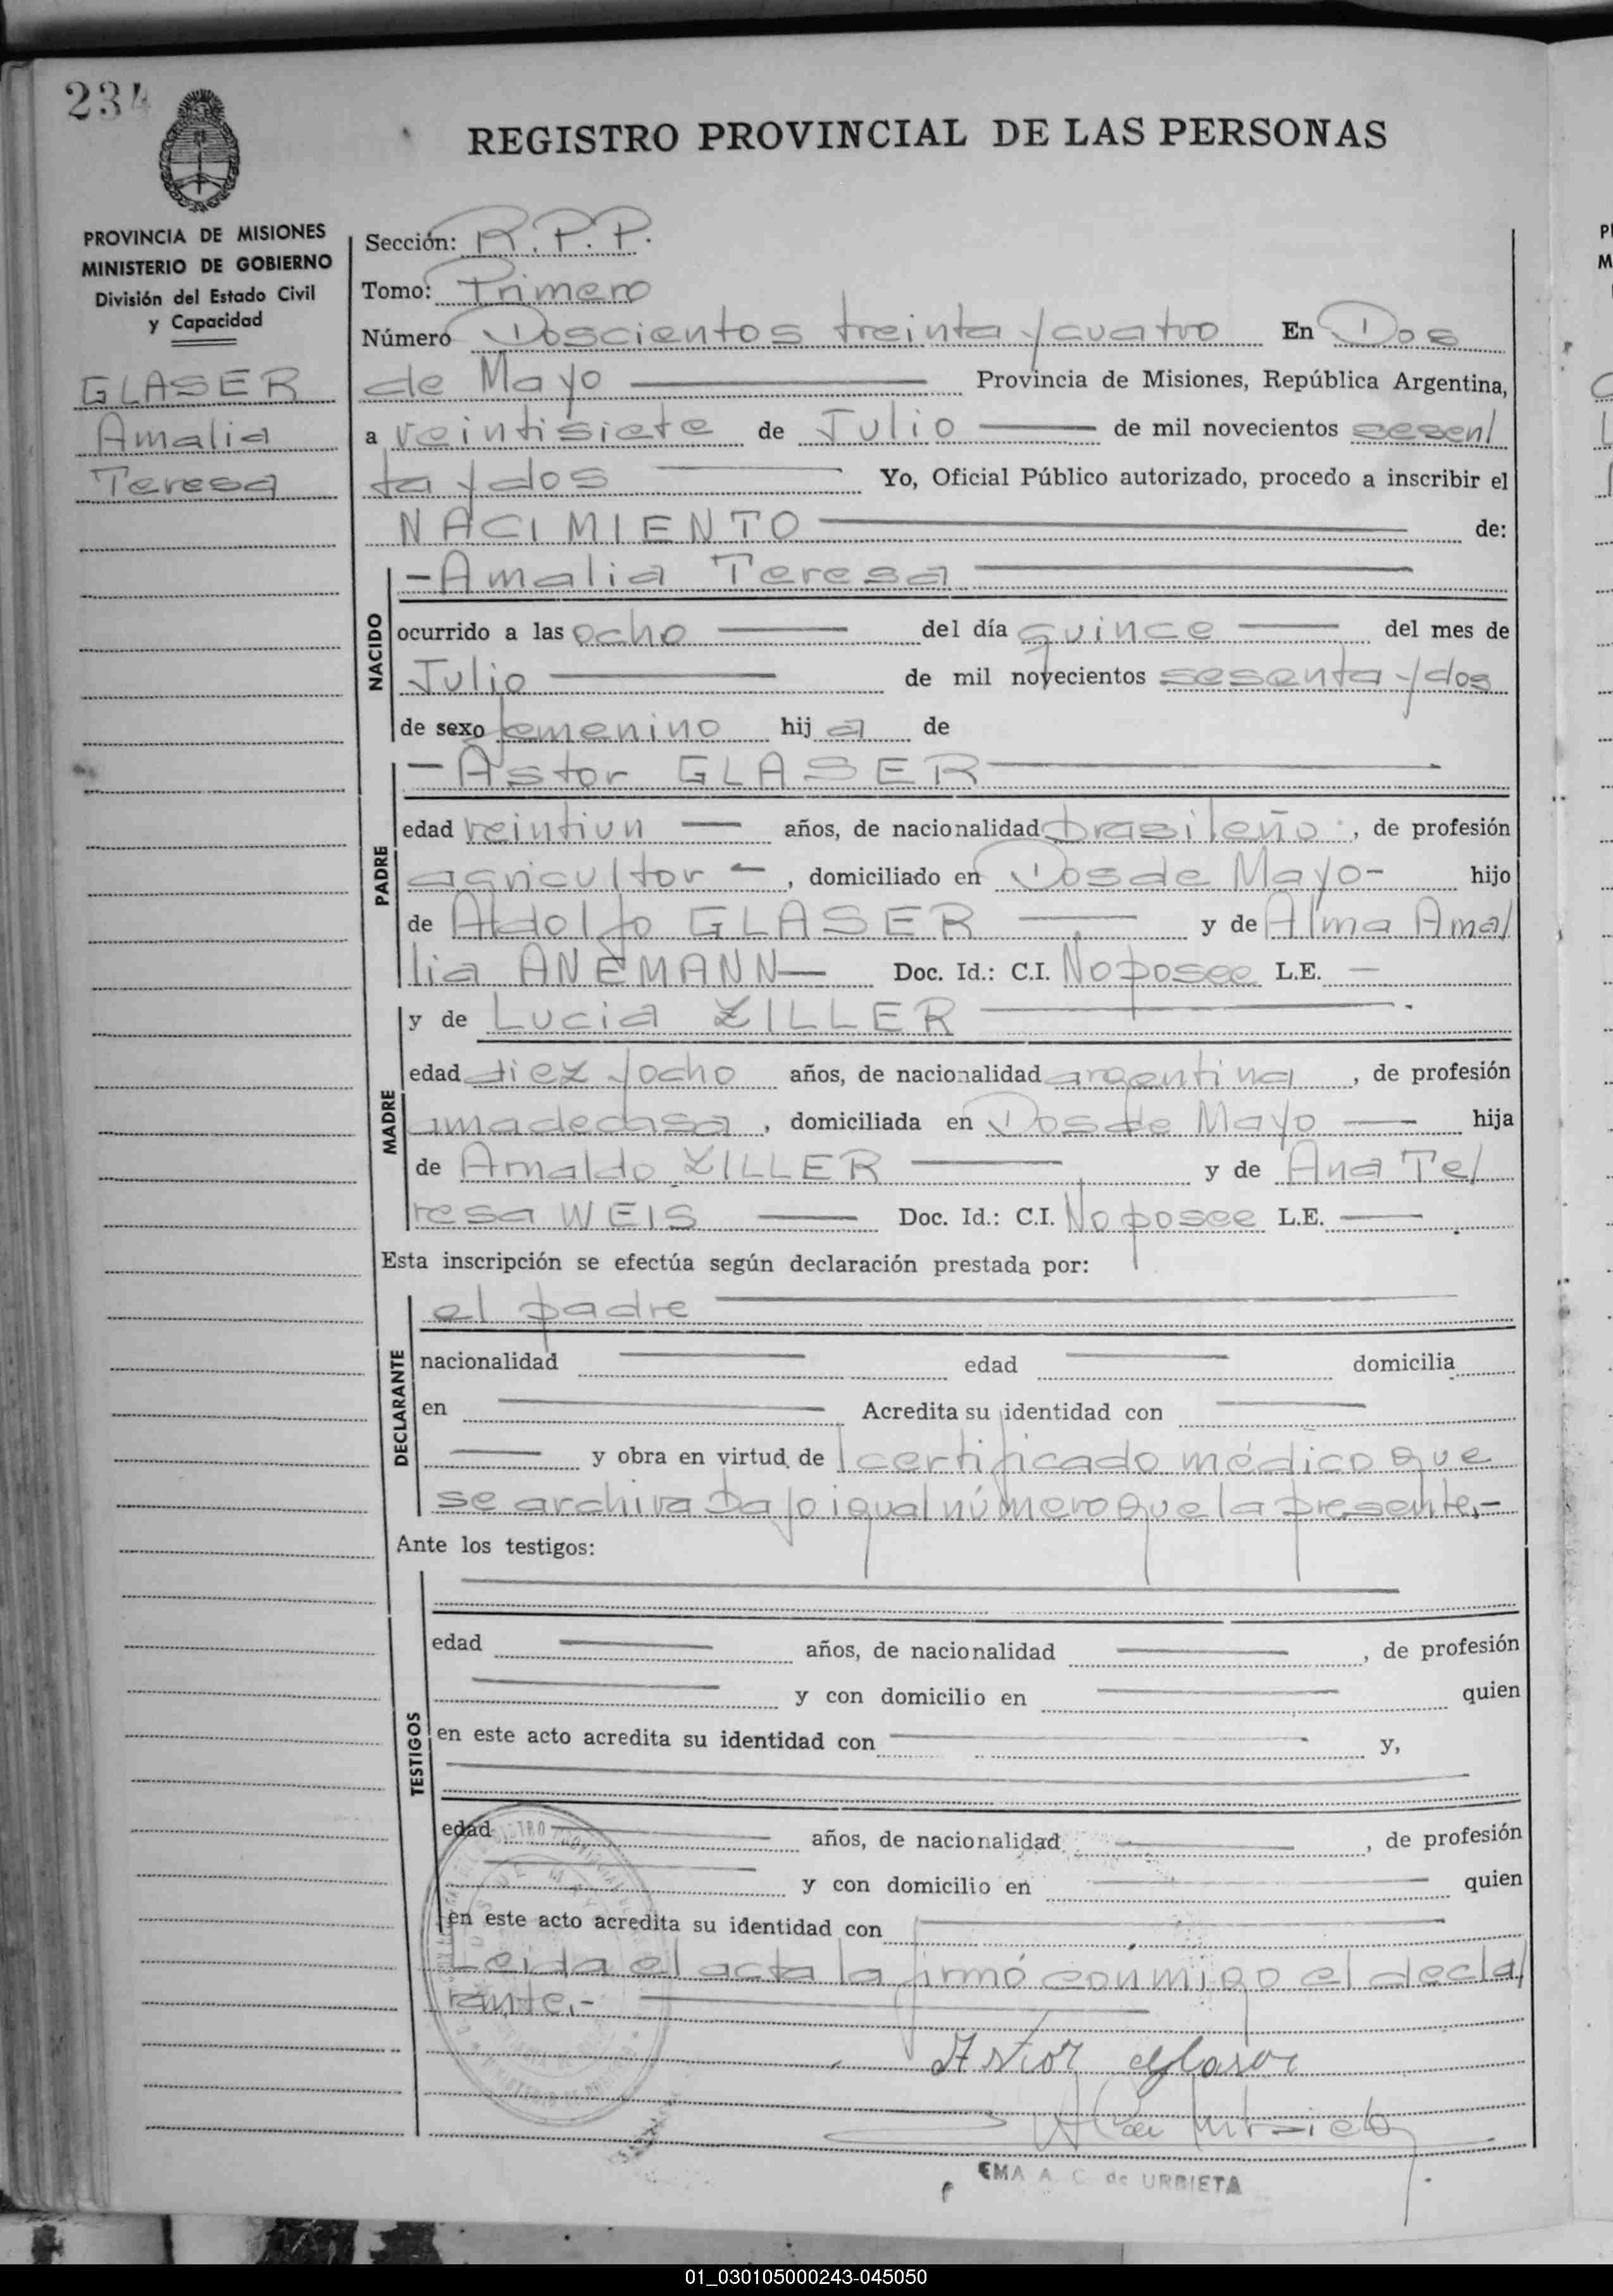 234
REGISTRO PROVINCIAL DE LAS PERSONAS
PROVINCIA DE MISIONES
MINISTERIO DE GOBIERNO
División del Estado Civil
y Capacidad
GLASER
Amalia
Teresa
Sección: R.P.P.
Tomo: Primero
Número Doscientos treinta y cuatro En Dos
de Mayo Provincia de Misiones, República Argentina,
a veintisiete de Julio de mil novecientos sesen/
ta y dos Yo, Oficial Público autorizado, procedo a inscribir el
NACIMIENTO de:
NACIDO
-Amalia Teresa
ocurrido a las ocho del día quince del mes de
Julio de mil novecientos sesenta y dos
de sexo femenino hija de
PADRE
-Astor GLASER
edad veintiun años, de nacionalidad brasileño, de profesión
agricultor -, domiciliado en Dos de Mayo- hijo
de Aldolfo GLASER y de Alma Ama/
lia ANEMANN- Doc. Id.: C.I. No posee L.E. -
MADRE
y de Lucia ZILLER
edad diez y ocho años, de nacionalidad argentina, de profesión
ama de casa, domiciliada en Dos de Mayo hija
de Arnaldo ZILLER y de Ana Te/
resa WEIS Doc. Id.: C.I. No posee L.E.
Esta inscripción se efectúa según declaración prestada por:
DECLARANTE
el padre
nacionalidad edad domicilia
en Acredita su identidad con
y obra en virtud de l certificado médico que
se archiva bajo igual número que la presente.-
Ante los testigos:
TESTIGOS
edad años, de nacionalidad , de profesión
y con domicilio en quien
en este acto acredita su identidad con y,
edad años, de nacionalidad , de profesión
y con domicilio en quien
en este acto acredita su identidad con
Leida el acta la firmó conmigo el decla/
rante.-
Astor Glaser
EMA A. C. de URBIETA
01_030105000243-045050